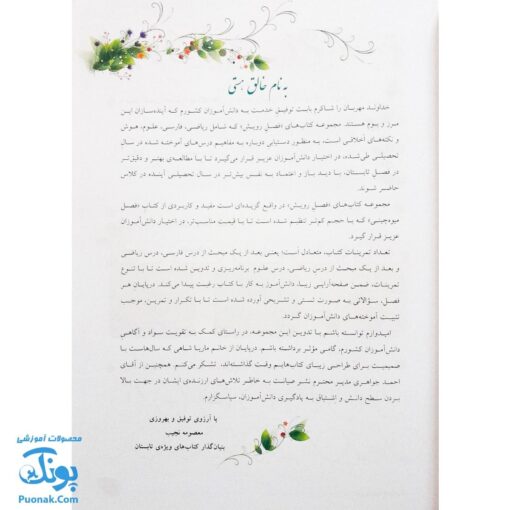 به نام خالق هستی
خداوند مهربان را شاکرم بابت توفیق خدمت به دانش‌آموزان کشورم که آینده‌سازان این
مرز و بوم هستند. مجموعه کتاب‌های «فصل رویش» که شامل ریاضی، فارسی، علوم، هوش
و نکته‌های اخلاقی است، به منظور دستیابی دوباره به مفاهیم درس‌های آموخته شده در سال
تحصیلی طی‌شده، در اختیار دانش‌آموزان عزیز قرار می‌گیرد تا با مطالعه‌ی بهتر و دقیق‌تر
در فصل تابستان، با دید باز و اعتماد به نفس بیش‌تر در سال تحصیلی آینده در کلاس
حاضر شوند.
مجموعه کتاب‌های «فصل رویش» در واقع گزیده‌ای است مفید و کاربردی از کتاب «فصل
میوه‌چینی» که با حجم کم‌تر تنظیم شده است تا با قیمت مناسب‌تر، در اختیار دانش‌آموزان
عزیز قرار گیرد.
تعداد تمرینات کتاب، متعادل است؛ یعنی بعد از یک مبحث از درس فارسی، درس ریاضی
و بعد از یک مبحث از درس ریاضی، درس علوم برنامه‌ریزی و تدوین شده است تا با تنوع
تمرینات، ضمن صفحه‌آرایی زیبا، دانش‌آموز به کار با کتاب رغبت پیدا می‌کند. درپایان هر
فصل، سؤالاتی به صورت تستی و تشریحی آورده شده است تا با تکرار و تمرین، موجب
تثبیت آموخته‌های دانش‌آموزان گردد.
امیدوارم توانسته باشم با تدوین این مجموعه، در راستای کمک به تقویت سواد و آگاهی
دانش‌آموزان کشورم، گامی مؤثر برداشته باشم. درپایان از خانم ماریا شاهی که سال‌هاست با
صمیمیت برای طراحی زیبای کتاب‌هایم وقت گذاشته‌اند، تشکر می‌کنم. همچنین از آقای
احمد جواهری مدیر محترم نشر ضیانت به خاطر تلاش‌های ارزنده‌ی ایشان در جهت بالا
بردن سطح دانش و اشتیاق به یادگیری دانش‌آموزان، سپاسگزارم.
با آرزوی توفیق و بهروزی
معصومه نجیب
بنیان‌گذار کتاب‌های ویژه‌ی تابستان
محصولات آموزشی
پونک
Puonak.Com